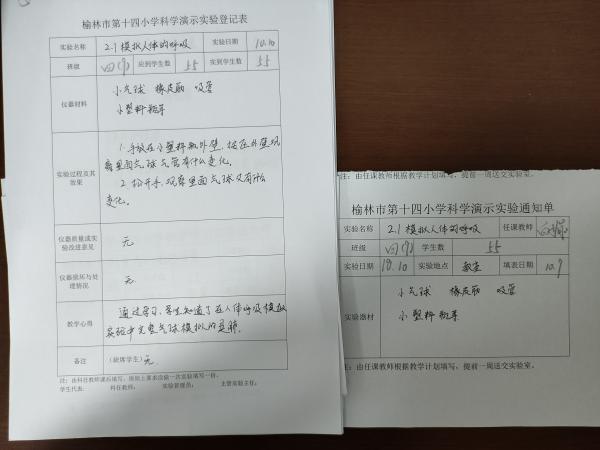 榆林市第十四小学科学演示实验登记表
实验名称 2.1模拟人体的呼吸 实验日期 10.10
班级 四(9) 应到学生数 55 实到学生数 55
仪器材料
小气球 橡皮筋 吸管
小塑料瓶等
实验过程及其效果
1.手放在小塑料瓶外壁,按压外壁观
察里面气球气管有什么变化。
2.松开手,观察里面气球又有什么
变化。
仪器质量或实验改进意见 无
仪器损坏与处理情况 无
教学心得
通过学习,学生知道了在人体呼吸模拟
实验中完整气球模拟的是肺。
备注 (缺席学生)无。
注:由科任教师课后填写,
学生代表: 科任教师: 实验管理员: 主管实验主任:
注:由任课教师根据教学计划填写,提前一周送交实验室。
榆林市第十四小学科学演示实验通知单
实验名称 2.1模拟人体的呼吸 任课教师
班级 四(9) 学生数 55
实验日期 10.10 实验地点 教室 填表日期 10.9
实验器材
小气球 橡皮筋 吸管
小塑料瓶等
由任课教师根据教学计划填写,提前一周送交实验室。